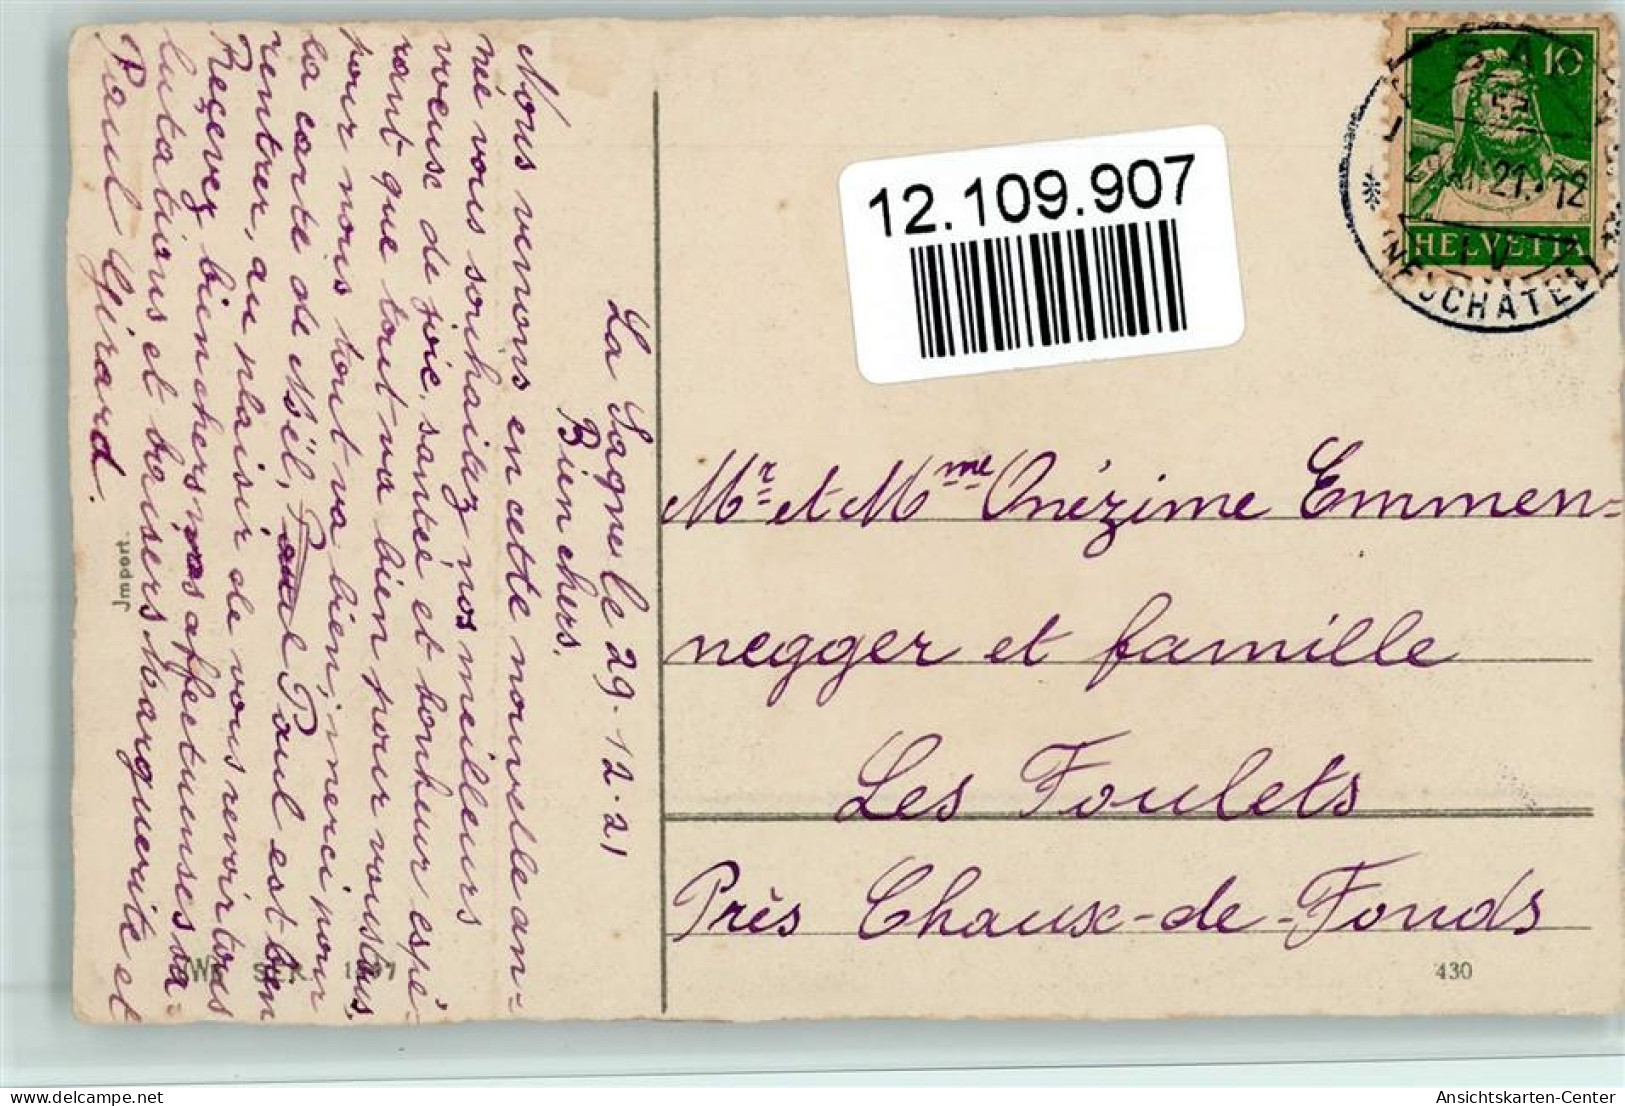 La Sagne le 29.12.21
Bien chers.
Nous venons en cette nouvelle an-
née vous souhaitez nos meilleurs
voeuse de joie, santée et bonheur espé-
rant que tout va bien pour vous tous,
pour nous tout va bien, merci pour
la carte de Noël, Paul est bien
rentrer, au plaisir de vous revoir tous
Reçevez bien chers nos affectuenses sa-
lutations et baisers Marguerite et
Paul Girard.
Jmport.
430
12.109.907
10
HELVETIA
(NEUCHATEL)
Mr et Mme Onézime Emmen=
negger et famille
Les Foulets
Près Chaux-de-Fonds
AnsichtskartenCenter.com
Ansichtskarten-Center